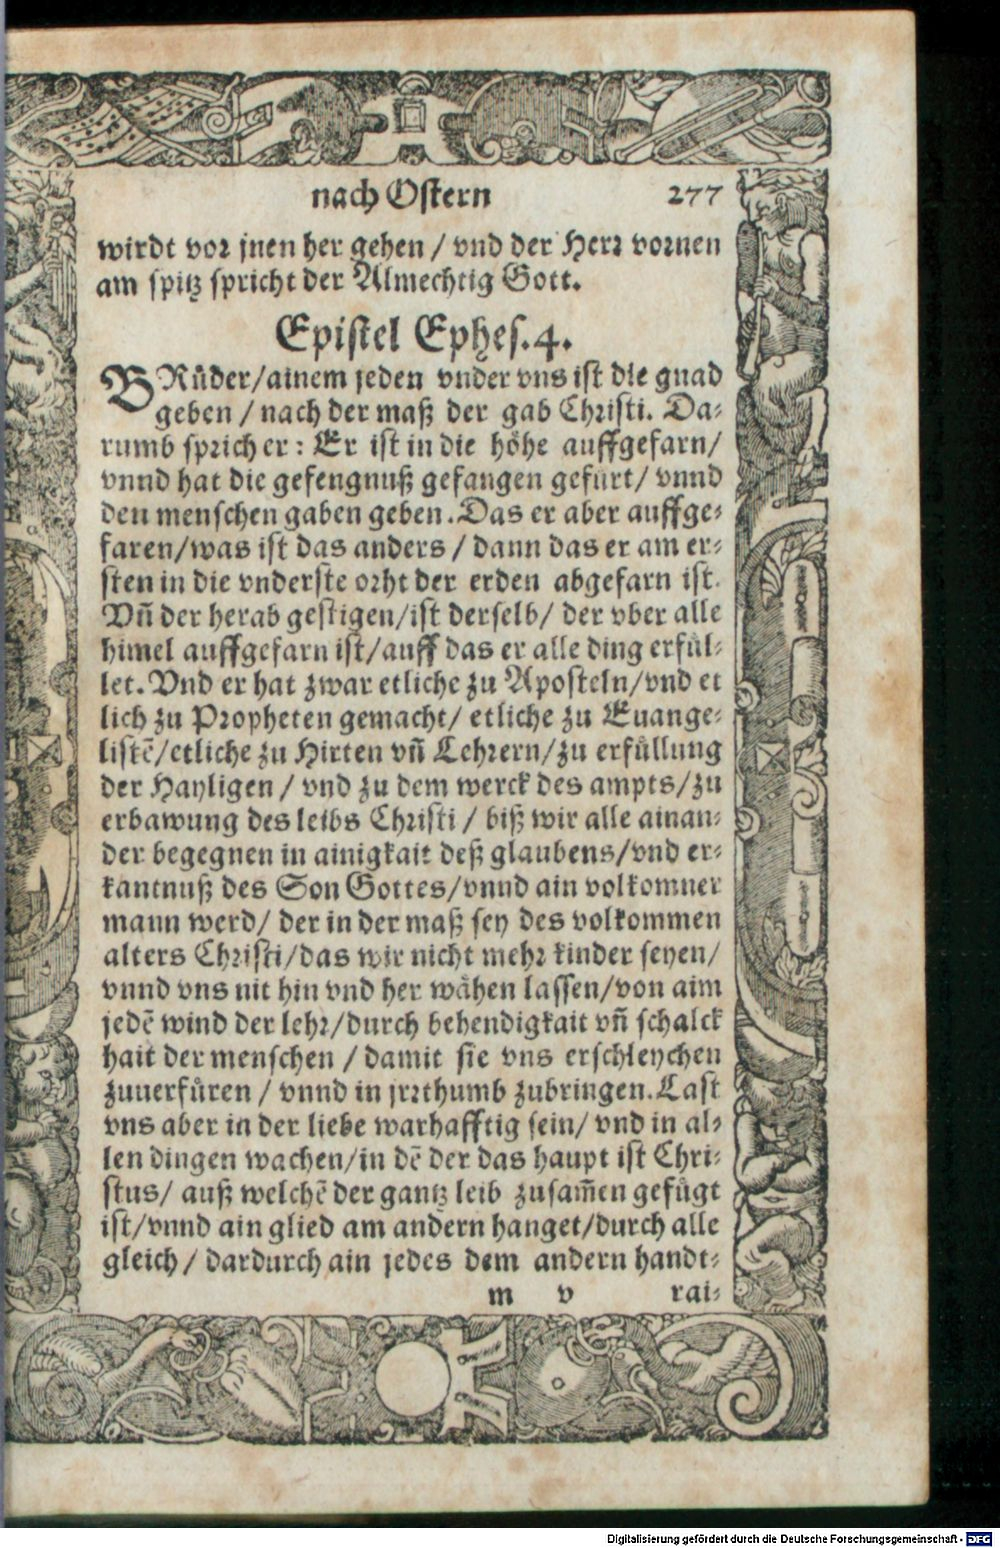 nach Ostern 277
wirdt vor jnen her gehen / vnd der Herr vornen
am spitz spricht der Almechtig Gott.
Epistel Ephes. 4.
BRüder/ainem jeden vnder vns ist die gnad
geben / nach der maß der gab Christi. Da⸗
rumb sprich er : Er ist in die höhe auffgefarn/
vnnd hat die gefengnuß gefangen gefürt/ vnnd
den menschen gaben geben. Das er aber auffge⸗
faren/was ist das anders / dann das er am er⸗
sten in die vnderste orht der erden abgefarn ist.
Vñ der herab gestigen/ist derselb/ der vber alle
himel auffgefarn ist/auff das er alle ding erfül⸗
let. Vnd er hat zwar etliche zu Aposteln/vnd et
lich zu Propheten gemacht/ etliche zu Euange⸗
listẽ/etliche zu Hirten vñ Lehrern/zu erfüllung
der Hayligen / vnd zu dem werck des ampts/zu
erbawung des leibs Christi / biß wir alle ainan⸗
der begegnen in ainigkait deß glaubens/vnd er⸗
kantnuß des Son Gottes/vnnd ain volkomner
mann werd/ der in der maß sey des volkommen
alters Christi/das wir nicht mehr kinder seyen/
vnnd vns nit hin vnd her wähen lassen/von aim
jedẽ wind der lehr/durch behendigkait vñ schalck
hait der menschen / damit sie vns erschleychen
zuuerfüren / vnnd in jrrthumb zubringen. Last
vns aber in der liebe warhafftig sein/ vnd in al⸗
len dingen wachen/in dẽ der das haupt ist Chri⸗
stus/ auß welchẽ der gantz leib zusam̃en gefügt
ist/vnnd ain glied am andern hanget/durch alle
gleich / dardurch ain jedes dem andern handt⸗
m v rai⸗
Digitalisierung gefördert durch die Deutsche Forschungsgemeinschaft - DFG